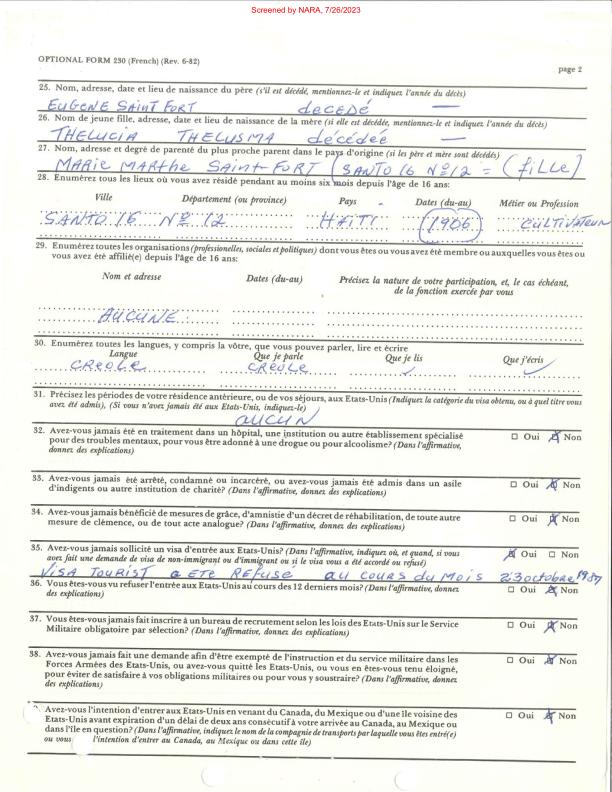 Screened by NARA, 7/26/2023
OPTIONAL FORM 230 (French) (Rev. 6-82)
page 2
25. Nom, adresse, date et lieu de naissance du père (s'il est décédé, mentionnez-le et indiquez l'année du décès)
EUGENE SAINT FORT decedé —
26. Nom de jeune fille, adresse, date et lieu de naissance de la mère (si elle est décédée, mentionnez-le et indiquez l'année du décès)
THELUCIA THELUSMA décédée —
27. Nom, adresse et degré de parenté du plus proche parent dans le pays d'origine (si les père et mère sont décédés)
MARIE MARTHE SAINT-FORT (SANTO 16 Nº 12 = (fille)
28. Enumérez tous les lieux où vous avez résidé pendant au moins six mois depuis l'âge de 16 ans:
Ville Département (ou province) Pays Dates (du-au) Métier ou Profession
SANTO 16 Nº 12 HAITI 1906 CULTIVATEUR
29. Enumérez toutes les organisations (professionelles, sociales et politiques) dont vous êtes ou vous avez été membre ou auxquelles vous êtes ou
vous avez été affilié(e) depuis l'âge de 16 ans:
Nom et adresse Dates (du-au) Précisez la nature de votre participation, et, le cas échéant,
de la fonction exercée par vous
AUCUNE
30. Enumérez toutes les langues, y compris la vôtre, que vous pouvez parler, lire et écrire
Langue Que je parle Que je lis Que j'écris
CREOLE CREOLE
31. Précisez les périodes de votre résidence antérieure, ou de vos séjours, aux Etats-Unis (Indiquez la catégorie du visa obtenu, ou à quel titre vous
avez été admis), (Si vous n'avez jamais été aux Etats-Unis, indiquez-le)
aucun
32. Avez-vous jamais été en traitement dans un hôpital, une institution ou autre établissement spécialisé
pour des troubles mentaux, pour vous être adonné à une drogue ou pour alcoolisme? (Dans l'affirmative,
donnez des explications)
Oui Non
33. Avez-vous jamais été arrêté, condamné ou incarcéré, ou avez-vous jamais été admis dans un asile
d'indigents ou autre institution de charité? (Dans l'affirmative, donnez des explications)
Oui Non
34. Avez-vous jamais bénéficié de mesures de grâce, d'amnistie d'un décret de réhabilitation, de toute autre
mesure de clémence, ou de tout acte analogue? (Dans l'affirmative, donnez des explications)
Oui Non
35. Avez-vous jamais sollicité un visa d'entrée aux Etats-Unis? (Dans l'affirmative, indiquez où, et quand, si vous
avez fait une demande de visa de non-immigrant ou d'immigrant ou si le visa vous a été accordé ou refusé)
Oui Non
VISA TOURIST a ETE REFUSE au cours du mois 23 octobre 1987
36. Vous êtes-vous vu refuser l'entrée aux Etats-Unis au cours des 12 derniers mois? (Dans l'affirmative, donnez
des explications)
Oui Non
37. Vous êtes-vous jamais fait inscrire à un bureau de recrutement selon les lois des Etats-Unis sur le Service
Militaire obligatoire par sélection? (Dans l'affirmative, donnez des explications)
Oui Non
38. Avez-vous jamais fait une demande afin d'être exempté de l'instruction et du service militaire dans les
Forces Armées des Etats-Unis, ou avez-vous quitté les Etats-Unis, ou vous en êtes-vous tenu éloigné,
pour éviter de satisfaire à vos obligations militaires ou pour vous y soustraire? (Dans l'affirmative, donnez
des explications)
Oui Non
Avez-vous l'intention d'entrer aux Etats-Unis en venant du Canada, du Mexique ou d'une île voisine des
Etats-Unis avant expiration d'un délai de deux ans consécutif à votre arrivée au Canada, au Mexique ou
dans l'île en question? (Dans l'affirmative, indiquez le nom de la compagnie de transports par laquelle vous êtes entré(e)
ou vous l'intention d'entrer au Canada, au Mexique ou dans cette île)
Oui Non